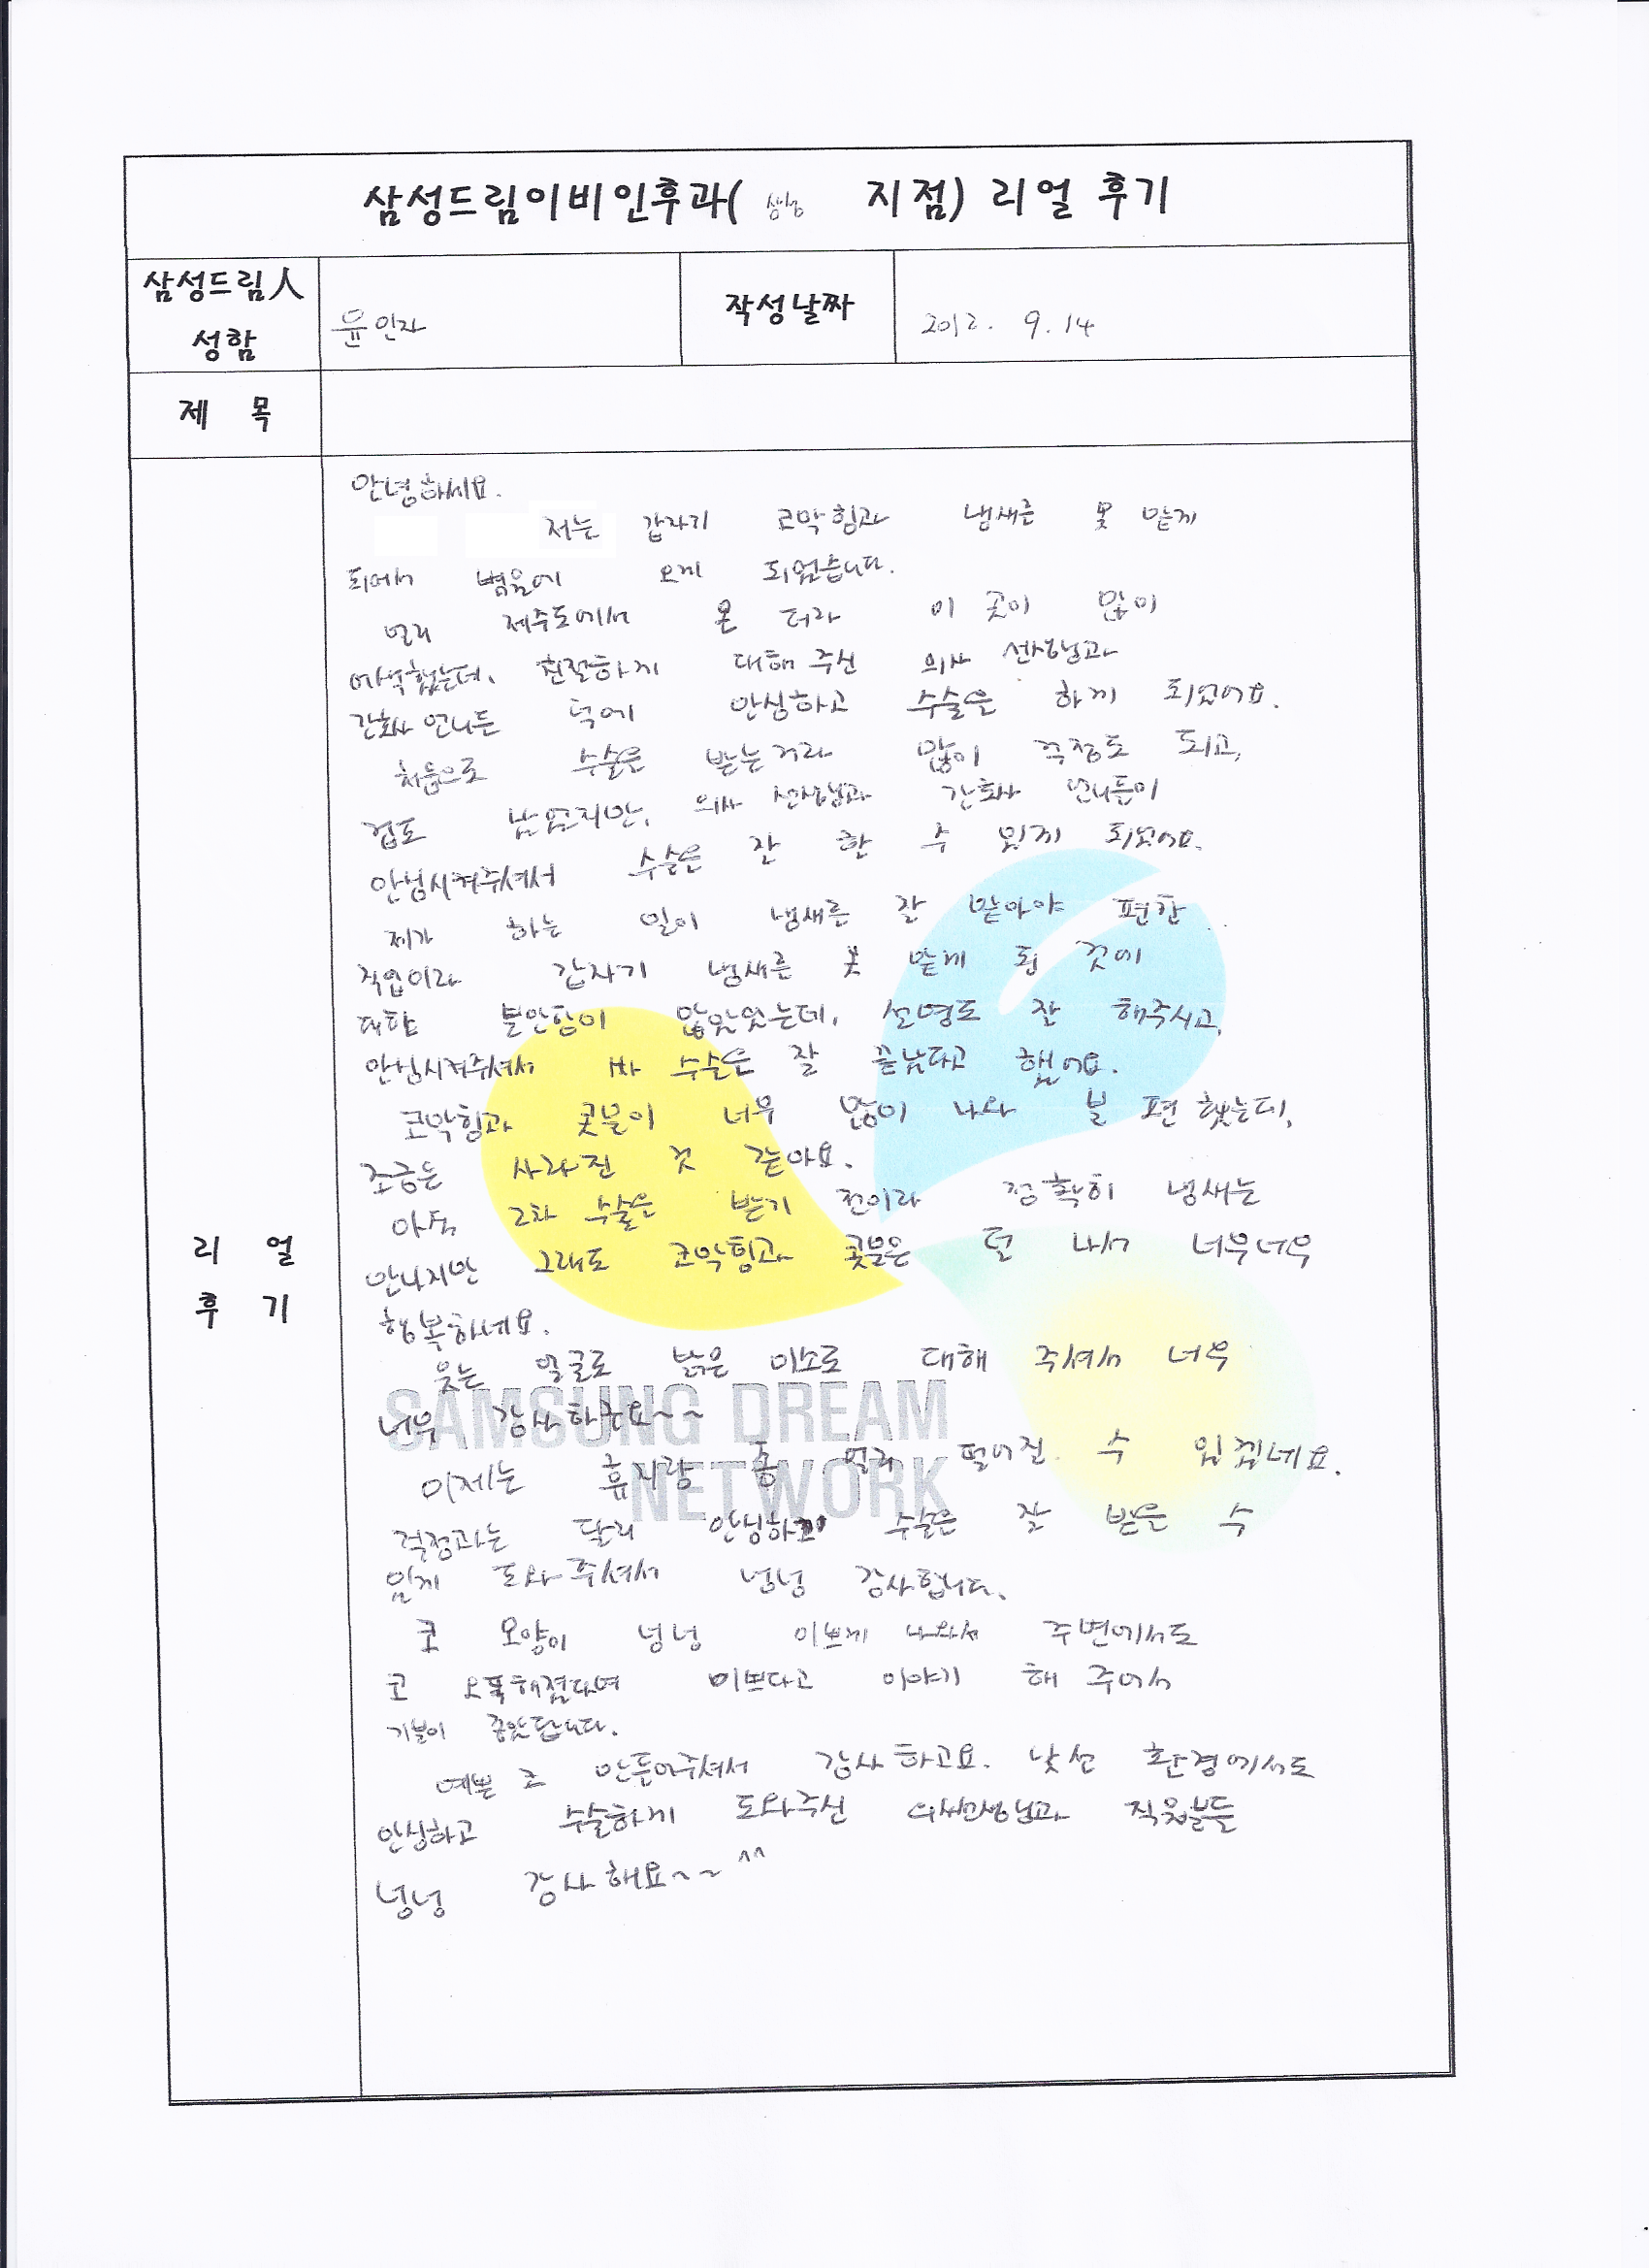 삼성드림이비인후과( 지점) 리얼 후기
삼성드림人
성함
윤인자
작성날짜
2012. 9. 14
제 목
안녕하세요.
저는 갑자기 코막힘과 냄새를 못 맡게
되어서 병원에 오게 되었습니다.
멀리 제주도에서 온 터라 이 곳이 많이
어색했는데, 친절하게 대해 주신 의사 선생님과
간호사 언니들 덕에 안심하고 수술을 하게 되었어요.
처음으로 수술을 받는거라 많이 걱정도 되고,
겁도 났었지만, 의사 선생님과 간호사 언니들이
안심시켜주셔서 수술을 잘 할 수 있게 되었어요.
제가 하는 일이 냄새를 잘 맡아야 편한
직업이라 갑자기 냄새를 못 맡게 된 것에
대한 불안함이 많았었는데, 설명도 잘 해주시고,
안심시켜주셔서 수술은 잘 끝났다고 했어요.
코막힘과 콧물이 너무 많이 나와 불 편했는데,
조금은 사라진 것 같아요.
아직 2차 수술을 받기 전이라 정확히 냄새는
안나지만 그래도 코막힘과 콧물은 덜 나서 너무너무
행복하네요.
웃는 얼굴로 밝은 미소로 대해 주셔서 너무
너무 감사하구요~~
이제는 휴지랑 좀 멀리 떨어질 수 있겠네요.
걱정과는 달리 안심하고 수술을 잘 받을 수
있게 도와주셔서 넘넘 감사합니다.
코 모양이 넘넘 이쁘게 나와서 주변에서도
코 오똑해졌다며 이쁘다고 이야기 해 주어서
기분이 좋았답니다.
예쁜 코 만들어주셔서 감사하고요. 낯선 환경에서도
안심하고 수술하게 도와주신 의사선생님과 직원분들
넘넘 감사해요~~^^
리 얼
후 기
SAMSUNG DREAM
NETWORK